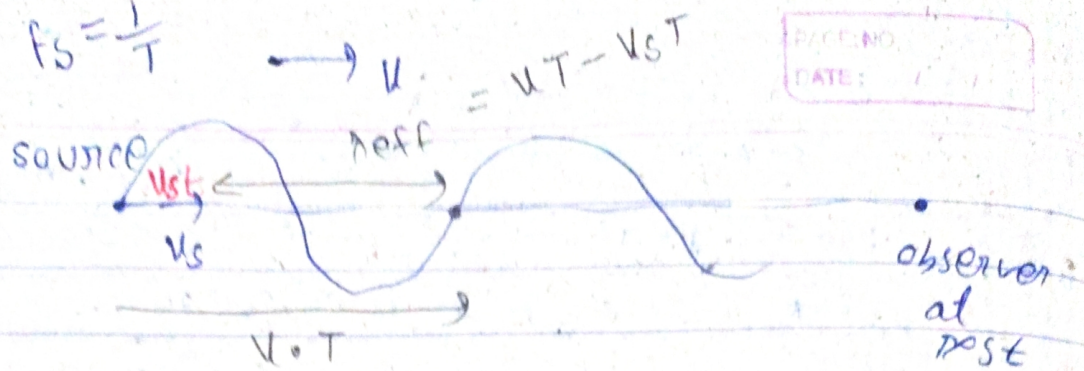 fs = 1/T
→ v
PAGE NO.
DATE:
λeff = vT - vsT
source
vst
vs
v.T
observer
at
rest